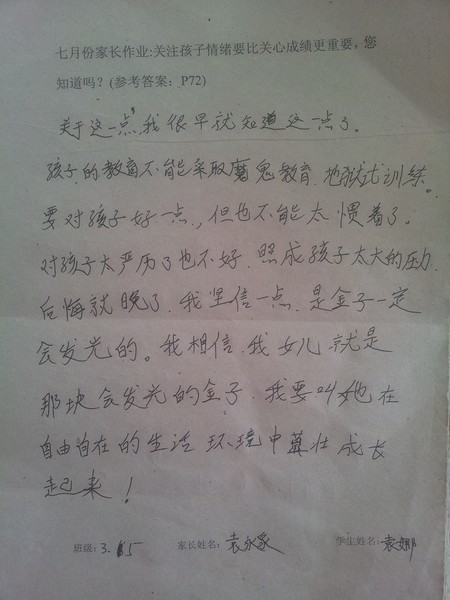 七月份家长作业:关注孩子情绪要比关心成绩更重要，您
知道吗？(参考答案：P72)
关于这一点，我很早就知道这一点了。
孩子的教育不能采取魔鬼教育.地狱式训练。
要对孩子好一点，但也不能太惯着了。
对孩子太严历了也不好.照成孩子太大的压力.
后悔就晚了.我坚信一点.是金子一定
会发光的。我相信.我女儿就是
那块会发光的金子.我要叫她在
自由自在的生活环境中茁壮成长
起来！
班级：3.5 家长姓名：袁永家 学生姓名：袁娜